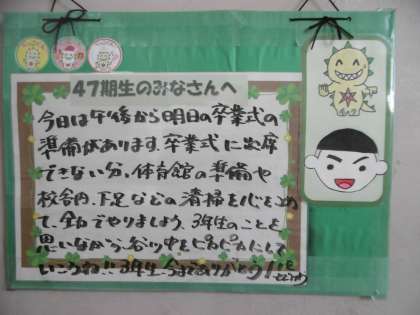 47期生のみなさんへ
今日は午後から明日の卒業式の
準備があります。卒業式に出席
できない分、体育館の準備や
校舎内、下足などの清掃を心をこめ
て、全力でやりましょう。3年生のことを
思いながら、谷川中をピカピカにして
いこうね!!3年生、今までありがとう!